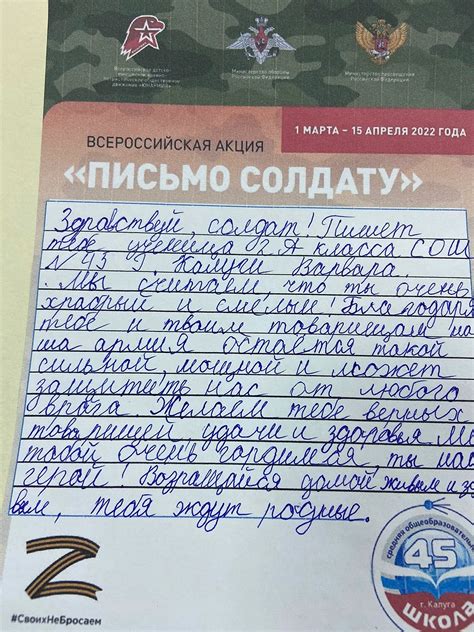 Всероссийское детско-
юношеское военно-
патриотическое общественное
движение «ЮНАРМИЯ»
Министерство обороны
Российской Федерации
Министерство просвещения
Российской Федерации
1 МАРТА – 15 АПРЕЛЯ 2022 ГОДА
ВСЕРОССИЙСКАЯ АКЦИЯ
«ПИСЬМО СОЛДАТУ»
Здравствуй, солдат! Пишет
тебе ученица 2 А класса СОШ
N 45 г Калуги Варвара.
Мы считаем, что ты очень
храбрый и смелый! Благодаря
тебе и твоим товарищам на
ша армия остается такой
сильной, мощной и может
защитить нас от любого
врага Желаем тебе верных
товарищей удачи и здоровья. Мы
тобой очень гордимся, ты наш
герой! Возращайся домой живым и здо
вым, тебя ждут родные.
Z
#СвоихНеБросаем
средняя общеобразовательная
45
г. Калуга
ШКОЛА